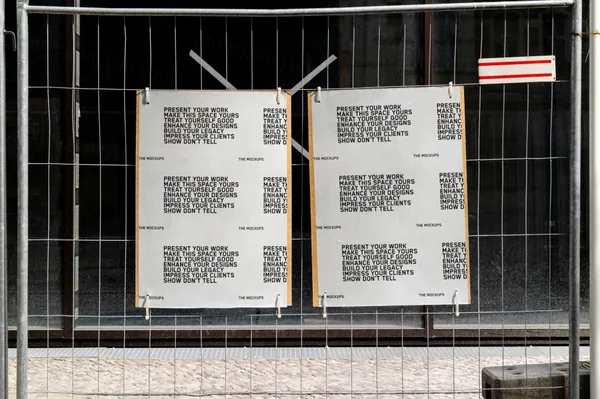 PRESENT YOUR WORK
MAKE THIS SPACE YOURS
TREAT YOURSELF GOOD
ENHANCE YOUR DESIGNS
BUILD YOUR LEGACY
IMPRESS YOUR CLIENTS
SHOW DON'T TELL
PRESEN
MAKE TH
TREAT Y
ENHANC
BUILD Y
IMPRESS
SHOW D
THE MOCKUPS
THE MOCKUPS
PRESENT YOUR WORK
MAKE THIS SPACE YOURS
TREAT YOURSELF GOOD
ENHANCE YOUR DESIGNS
BUILD YOUR LEGACY
IMPRESS YOUR CLIENTS
SHOW DON'T TELL
PRESEN
MAKE TH
TREAT Y
ENHANC
BUILD Y
IMPRESS
SHOW D
THE MOCKUPS
THE MOCKUPS
PRESENT YOUR WORK
MAKE THIS SPACE YOURS
TREAT YOURSELF GOOD
ENHANCE YOUR DESIGNS
BUILD YOUR LEGACY
IMPRESS YOUR CLIENTS
SHOW DON'T TELL
PRESEN
MAKE TH
TREAT Y
ENHANC
BUILD Y
IMPRESS
SHOW D
THE MOCKUPS
THE MOCKUPS
PRESENT YOUR WORK
MAKE THIS SPACE YOURS
TREAT YOURSELF GOOD
ENHANCE YOUR DESIGNS
BUILD YOUR LEGACY
IMPRESS YOUR CLIENTS
SHOW DON'T TELL
PRESEN
MAKE TH
TREAT Y
ENHANC
BUILD Y
IMPRESS
SHOW D
THE MOCKUPS
THE MOCKUPS
PRESENT YOUR WORK
MAKE THIS SPACE YOURS
TREAT YOURSELF GOOD
ENHANCE YOUR DESIGNS
BUILD YOUR LEGACY
IMPRESS YOUR CLIENTS
SHOW DON'T TELL
PRESEN
MAKE TH
TREAT Y
ENHANC
BUILD Y
IMPRESS
SHOW D
THE MOCKUPS
THE MOCKUPS
PRESENT YOUR WORK
MAKE THIS SPACE YOURS
TREAT YOURSELF GOOD
ENHANCE YOUR DESIGNS
BUILD YOUR LEGACY
IMPRESS YOUR CLIENTS
SHOW DON'T TELL
PRESEN
MAKE TH
TREAT Y
ENHANC
BUILD Y
IMPRESS
SHOW D
THE MOCKUPS
THE MOCKUPS